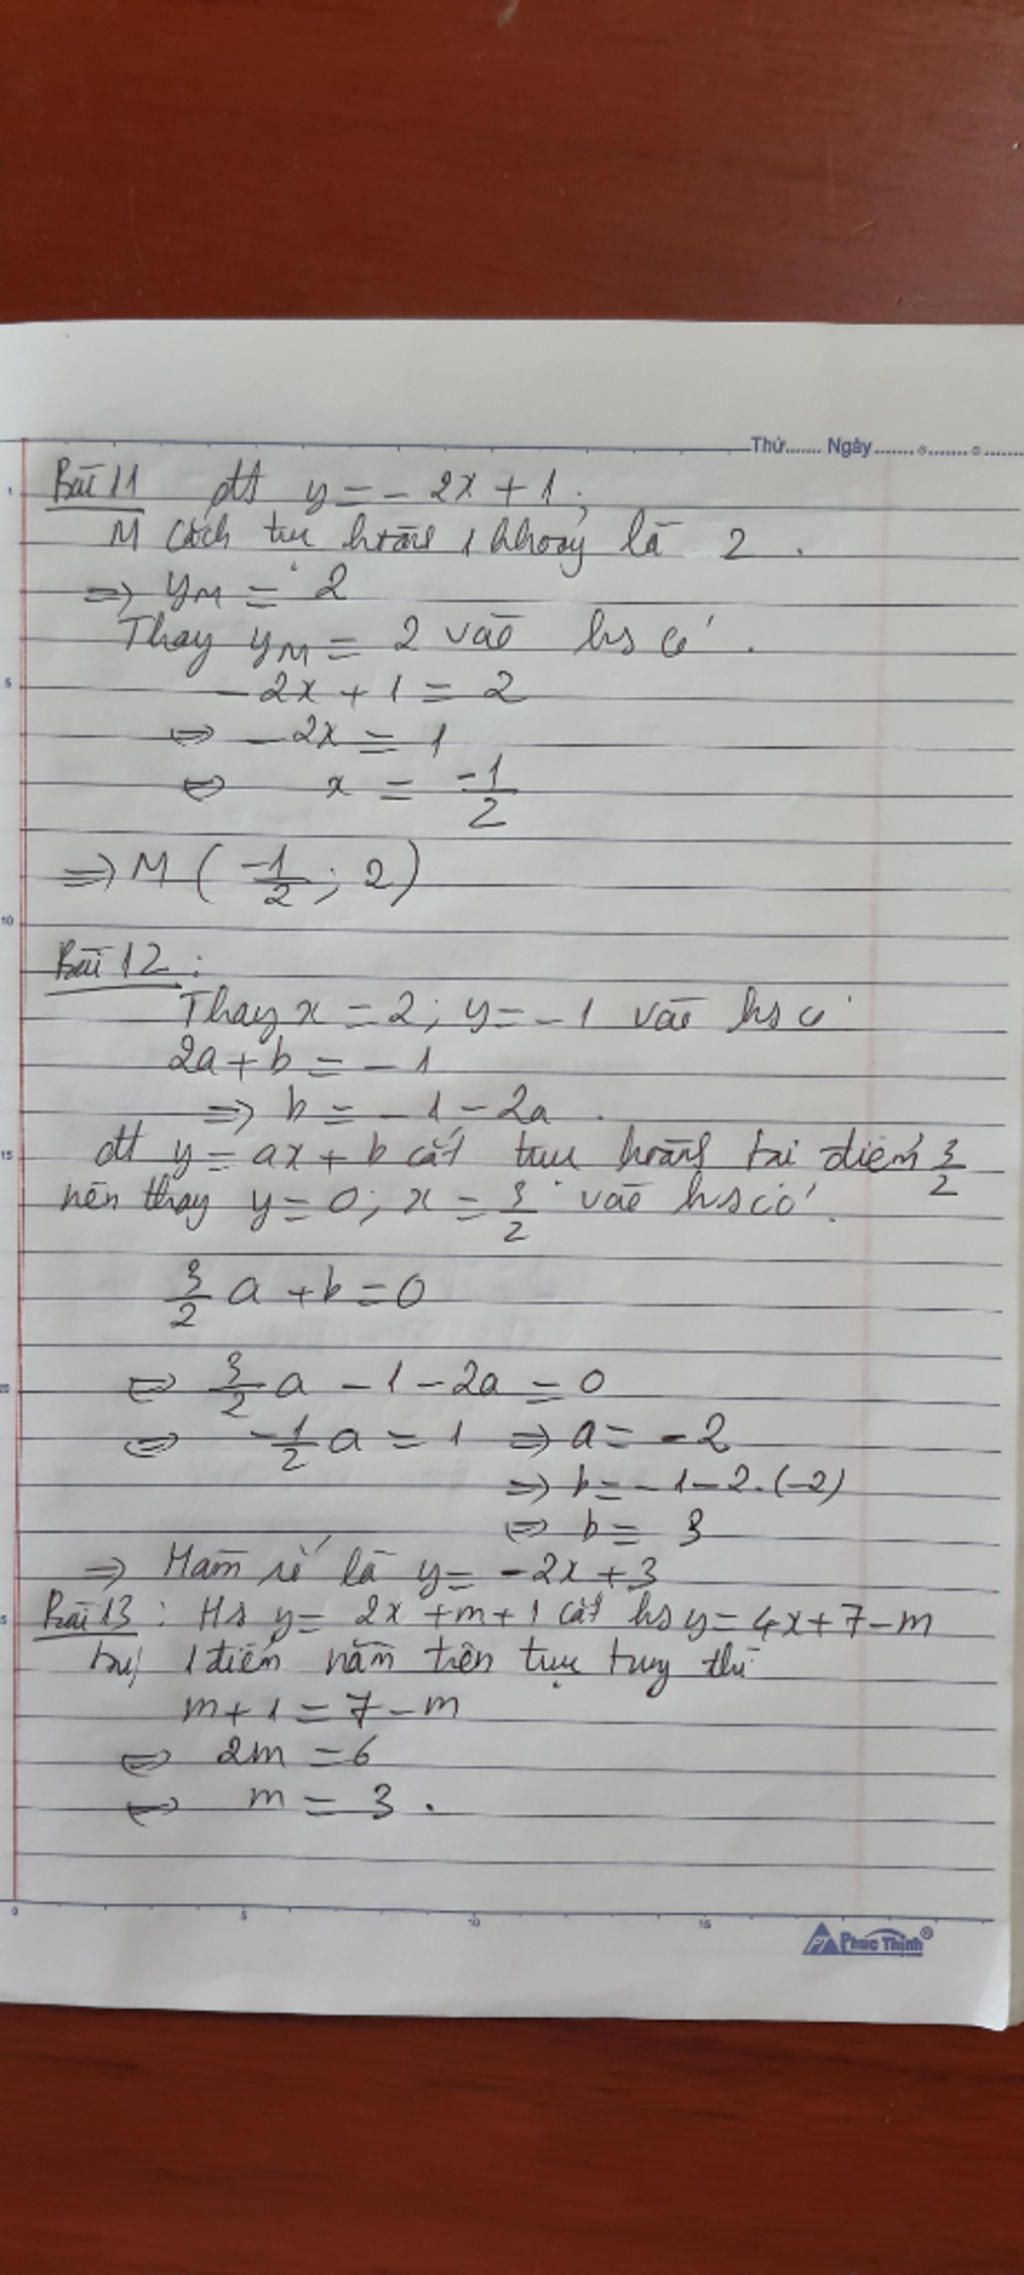 Thứ....... Ngày
Bài 11 đt y = - 2x + 1 ;
M Cách trục hoành 1 khoảng là 2 .
=> yM = 2
Thay yM = 2 vào hs có .
- 2x + 1 = 2
<=> - 2x = 1
<=> x = -1/2
=> M ( -1/2 ; 2 )
Bài 12 :
Thay x = 2 ; y = - 1 vào hs có
2a + b = - 1
=> b = - 1 - 2a .
đt y = ax + b cắt trục hoành tại điểm 3/2
nên thay y = 0 ; x = 3/2 vào hs có .
3/2 a + b = 0
<=> 3/2 a - 1 - 2a = 0
<=> - 1/2 a = 1 => a = - 2
=> b = - 1 - 2 . (-2)
<=> b = 3
=> Hàm số là y = - 2x + 3
Bài 13 : Hs y = 2x + m + 1 cắt hs y = 4x + 7 - m
tại 1 điểm nằm trên trục tung thì
m + 1 = 7 - m
<=> 2m = 6
<=> m = 3 .
PT Phúc Thịnh®